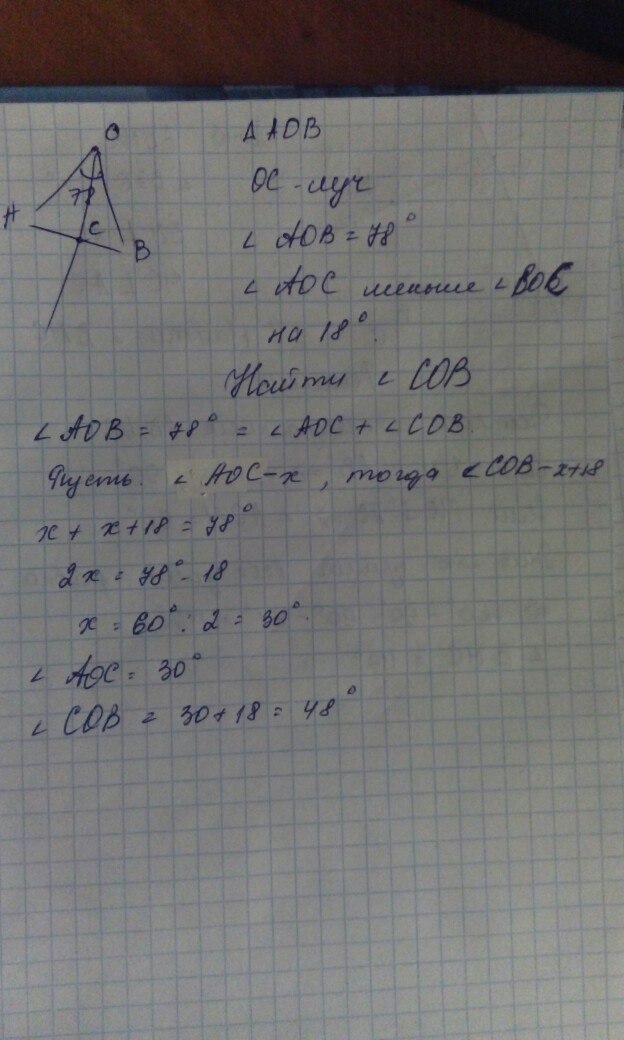 O
78
A
C
B
Δ AOB
OC - луч
∠ AOB = 78°
∠ AOC меньше ∠ BOC
на 18°.
Найти ∠ COB
∠ AOB = 78° = ∠ AOC + ∠ COB.
Пусть. ∠ AOC - x, тогда ∠ COB - x+18
x + x + 18 = 78°
2x = 78° - 18
x = 60° : 2 = 30°.
∠ AOC = 30°
∠ COB = 30+18 = 48°